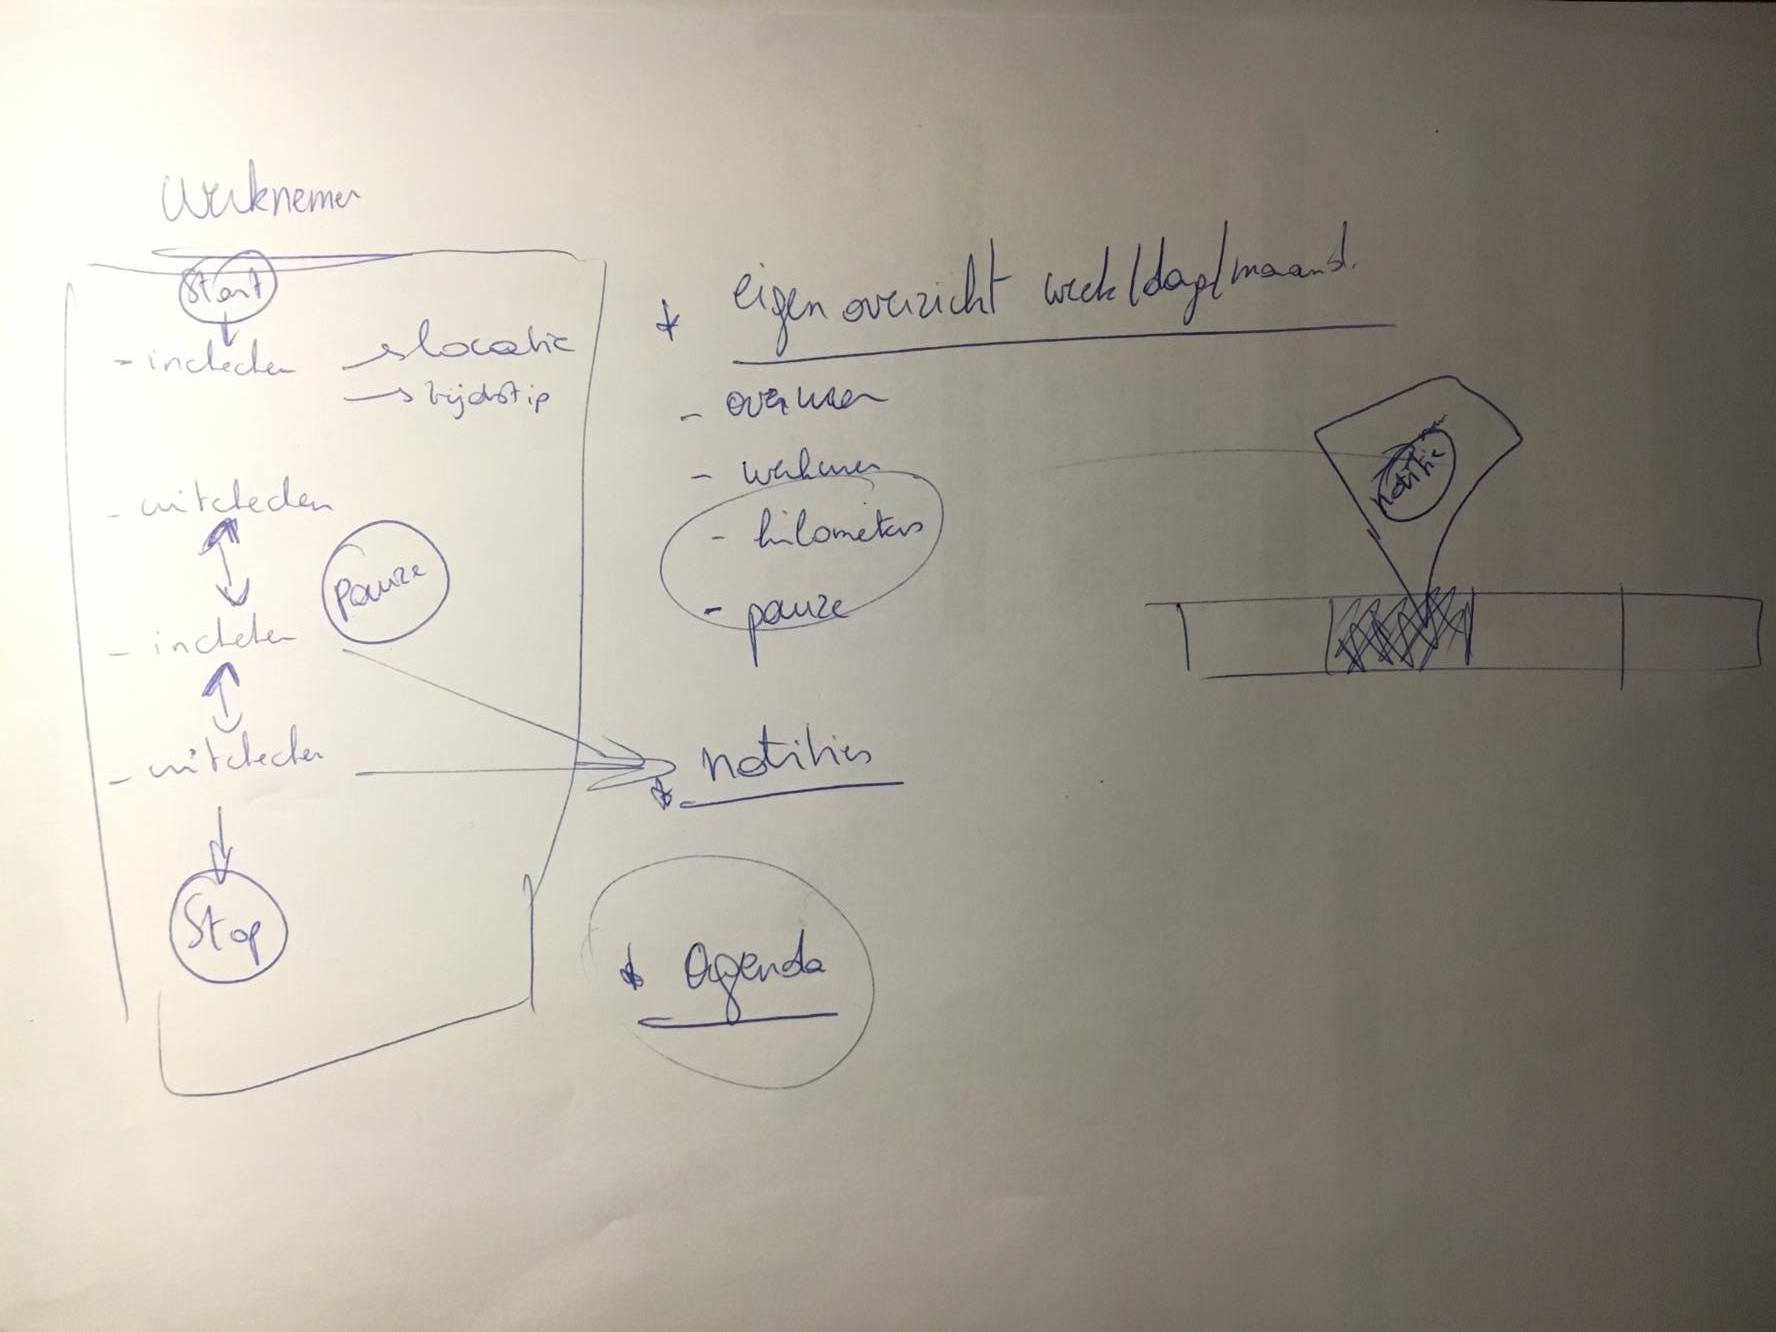 werknemer
Start
- inchecken → locatie
→ tijdstip
- uitchecken
Pauze
- inchecken
- uitchecken
Stop
* eigen overzicht week/dag/maand.
- overuren
- werkuren
- kilometers
- pauze
* notities
* Agenda
notitie